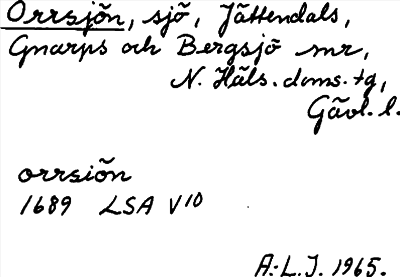 Orrsjön, sjö, Jättendals,
Gnarps och Bergsjö snr,
N. Häls. doms. tg,
Gävl. l.
orrsiön
1689 LSA V10
A.-L.J. 1965.